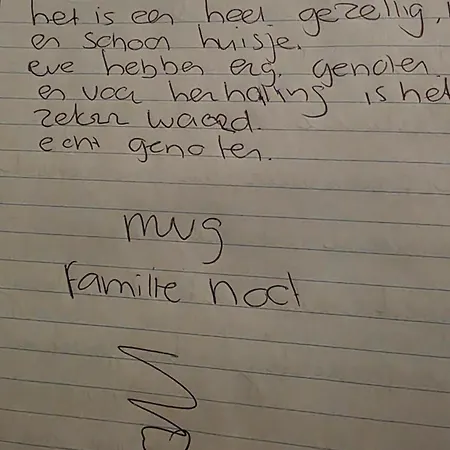 het is een heel gezellig,
en schoon huisje.
eve hebben erg genoten
en voor herhaling is het
zeker waard.
echt genoten.
mvg
Familie noct